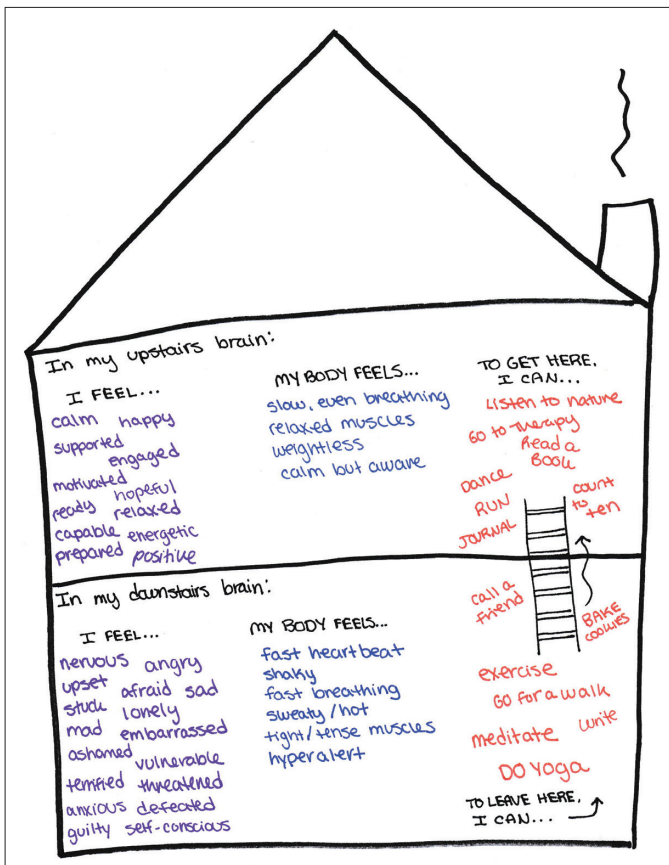 In my upstairs brain:
I FEEL...
calm happy
supported
engaged
motivated
ready hopeful
relaxed
capable energetic
prepared positive
MY BODY FEELS...
slow, even breathing
relaxed muscles
weightless
calm but aware
TO GET HERE,
I CAN...
Listen to nature
GO to Therapy
Read a
BOOK
Dance
RUN
JOURNAL
count
to
ten
In my downstairs brain:
I FEEL...
nervous angry
upset afraid sad
stuck lonely
mad embarrassed
ashamed vulnerable
terrified threatened
anxious defeated
guilty self-conscious
MY BODY FEELS...
fast heartbeat
shaky
fast breathing
sweaty/hot
tight/tense muscles
hyperalert
call a
friend
BAKE
COOKIES
exercise
GO for a walk
meditate write
DO YOGA
TO LEAVE HERE,
I CAN...